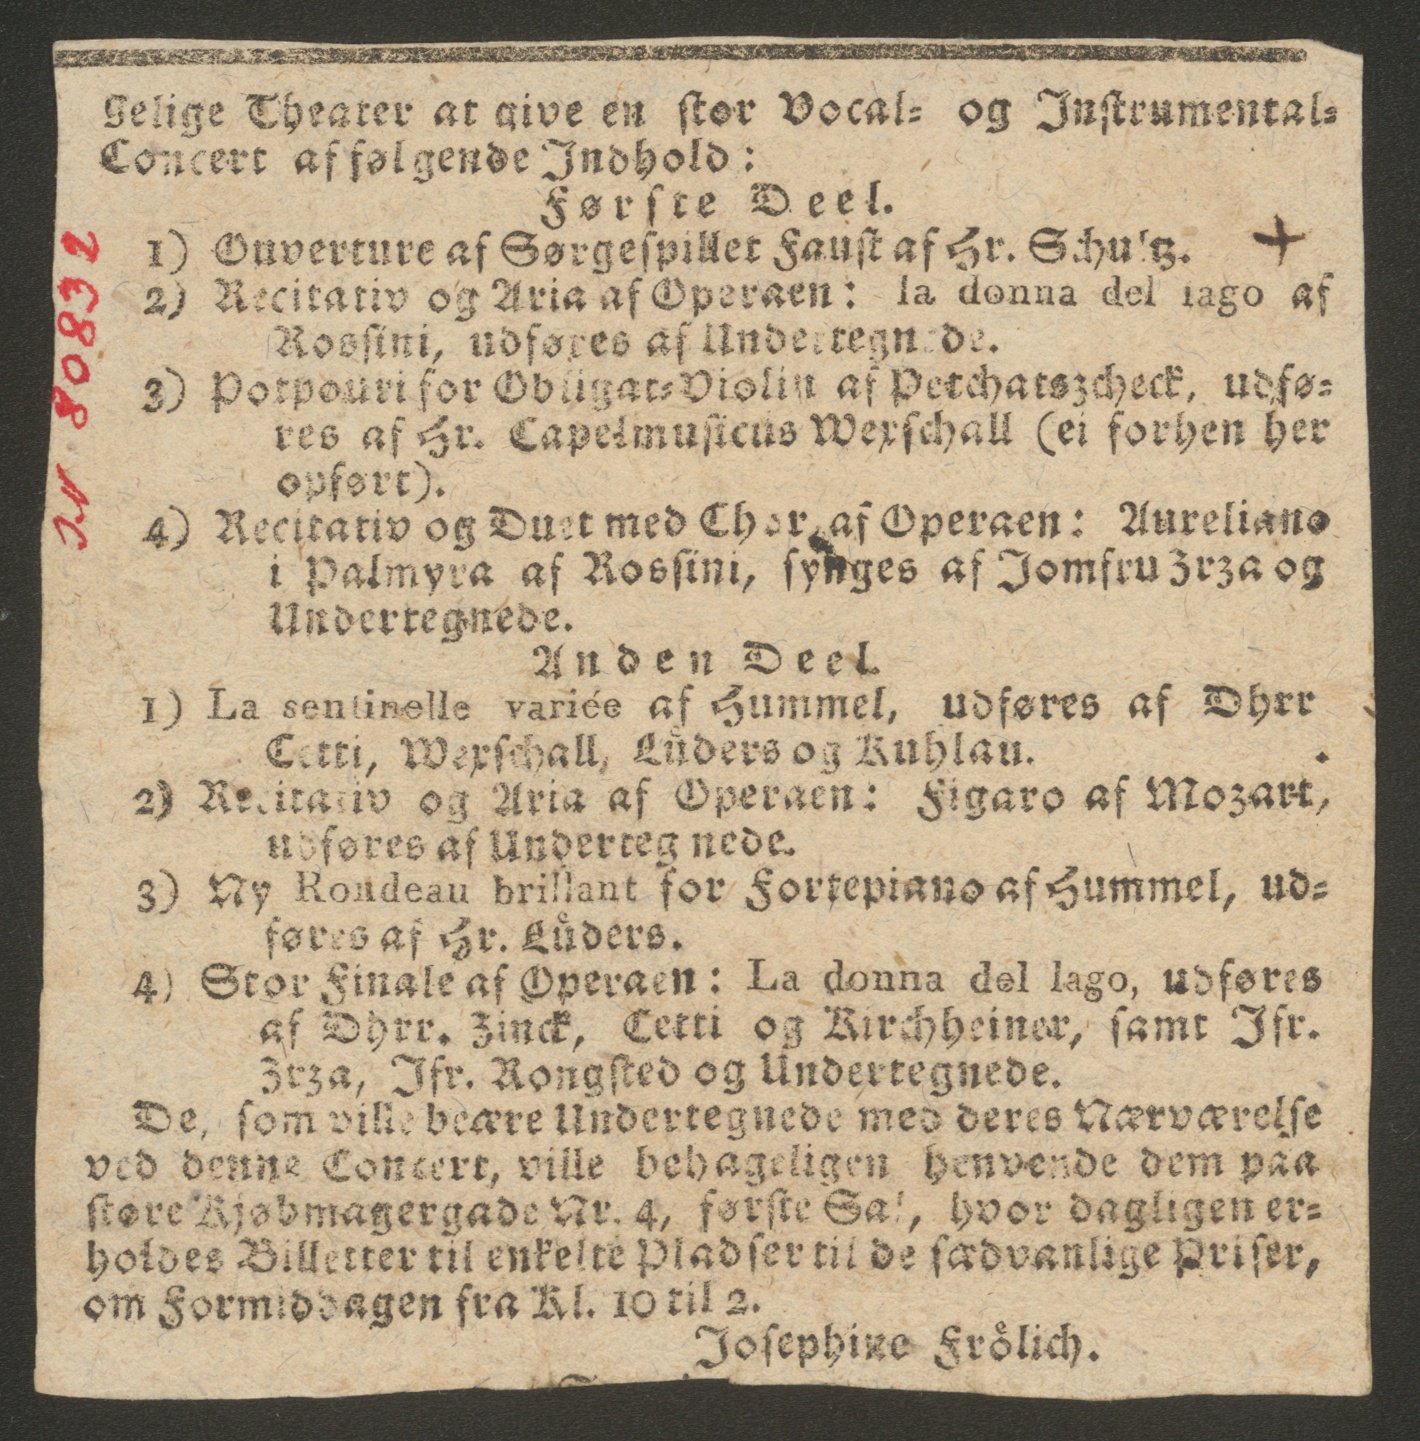 gelige Theater at give en stor Vocal- og Instrumental-
Concert af følgende Indhold:
Første Deel.
1) Ouverture af Sørgespillet Faust af Hr. Schultz. +
2) Recitativ og Aria af Operaen: la donna del lago af
Rossini, udføres af Undertegnede.
3) Potpouri for Obligat-Violin af Petchatszcheck, udfø-
res af Hr. Capelmusicus Wexschall (ei forhen her
opført).
4) Recitativ og Duet med Chor, af Operaen: Aureliano
i Palmyra af Rossini, synges af Jomfru Zrza og
Undertegnede.
Anden Deel.
1) La sentinelle variée af Hummel, udføres af Dhrr
Cetti, Wexschall, Lůders og Kuhlau.
2) Recitativ og Aria af Operaen: Figaro af Mozart,
udføres af Undertegnede.
3) Ny Rondeau brillant for Fortepiano af Hummel, ud-
føres af Hr. Lůders.
4) Stor Finale af Operaen: La donna del lago, udføres
af Dhrr. Zinck, Cetti og Kirchheiner, samt Jfr.
Zrza, Jfr. Rongsted og Undertegnede.
De, som ville beære Undertegnede med deres Nærværelse
ved denne Concert, ville behageligen henvende dem paa
store Kjøbmagergade Nr. 4, første Sal, hvor dagligen er-
holdes Billetter til enkelte Pladser til de sædvanlige Priser,
om Formiddagen fra Kl. 10 til 2.
Josephine Frôlich.
80832